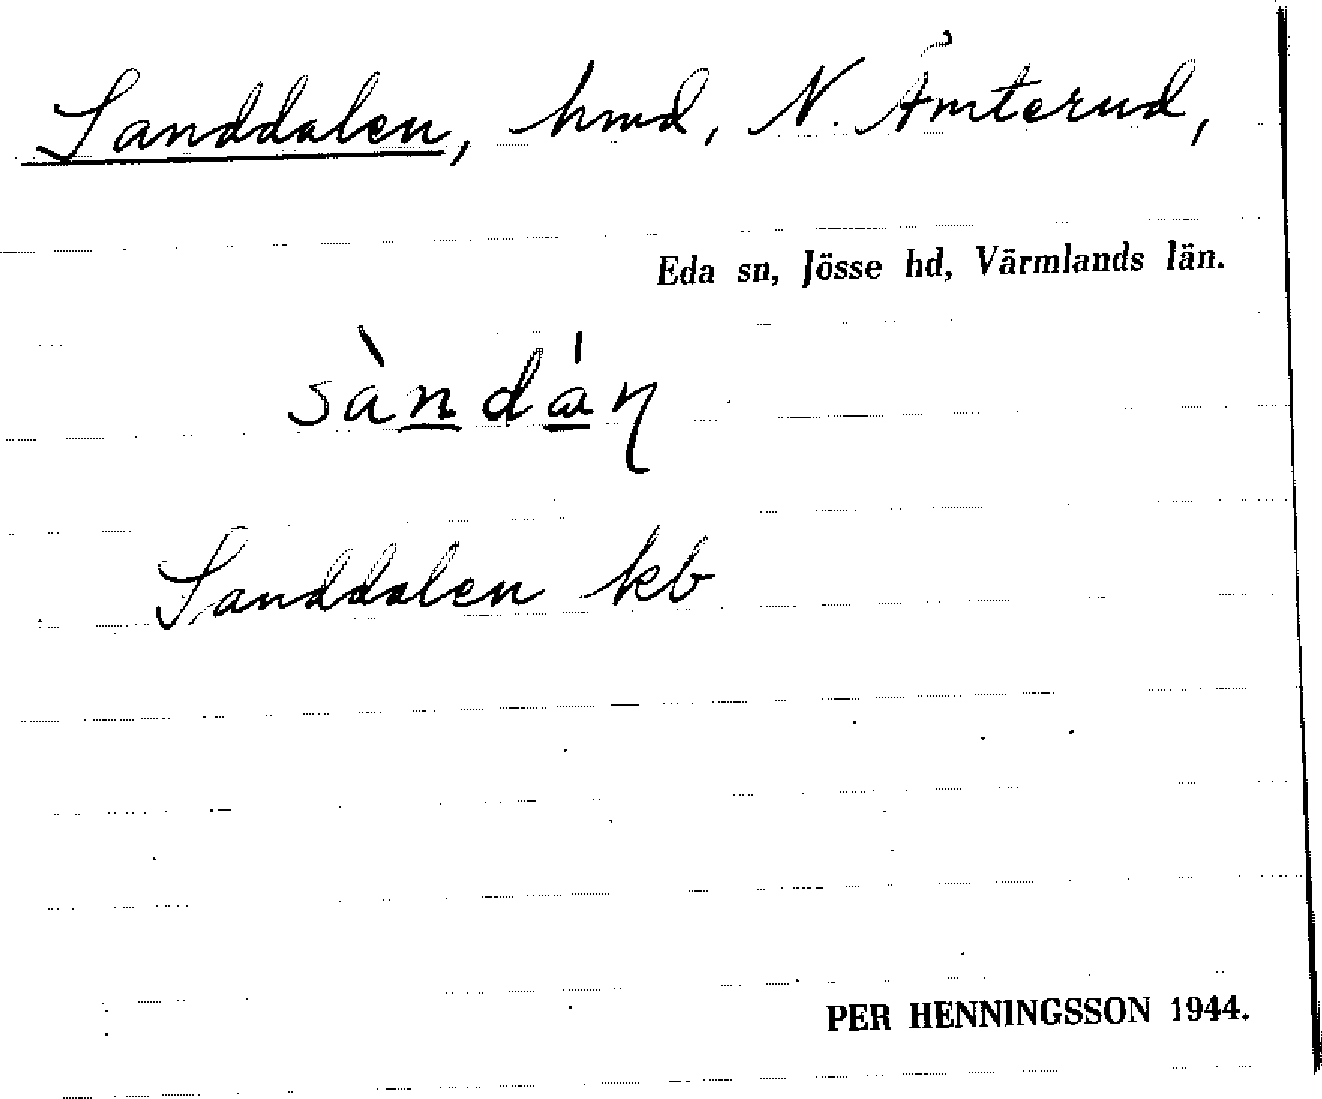 Sanddalen, hmd, N. Åmterud,
Eda sn, Jösse hd, Värmlands län.
sàndán
Sanddalen kb
PER HENNINGSSON 1944.